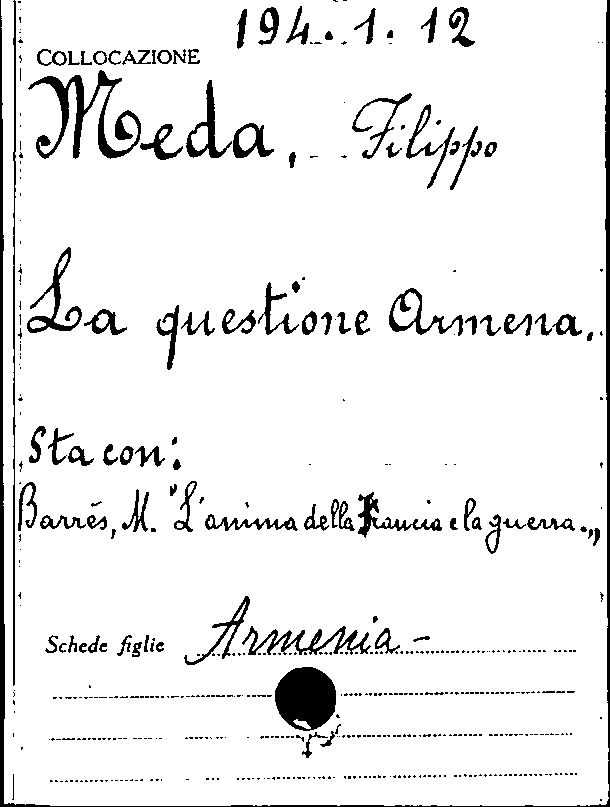 194.1.12
COLLOCAZIONE
Meda, Filippo
La questione Armena.
Sta con:
Barrés, M. "L'anima della Francia e la guerra.„
Schede figlie Armenia -